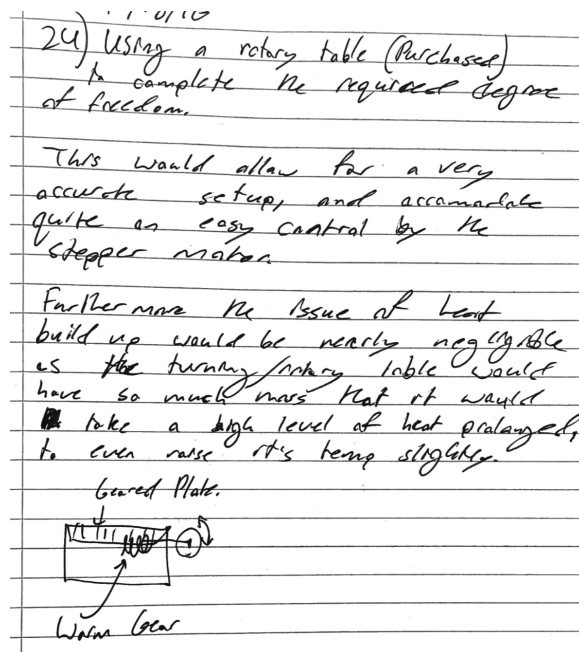 24) Using a rotary table (Purchased)
to complete the required degree
of freedom.
This would allow for a very
accurate setup, and accomodate
quite an easy control by the
stepper motor.
Furthermore the issue of heat
build up would be nearly negligible
as the turning/rotary table would
have so much mass that it would
take a high level of heat prolonged,
to even raise it's temp slightly.
Geared Plate.
Worm Gear